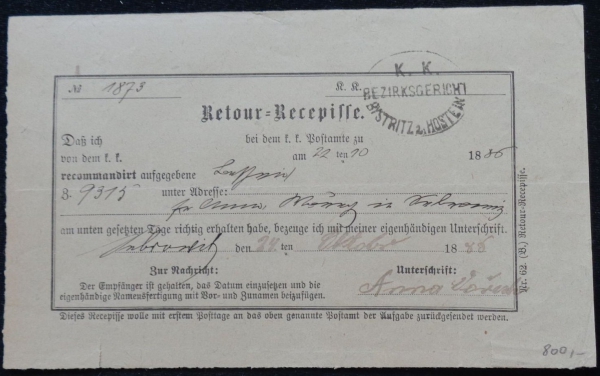 № 1873 K. K.
K. K.
BEZIRKSGERICHT
BISTRITZ a. HOSTEIN
Retour=Recepisse.
Daß ich bei dem k. k. Postamte zu
von dem k. k. am 22 ten 10 1886
recommandirt aufgegebene
Z. 9315 unter Adresse:
Anna in
am unten gesetzten Tage richtig erhalten habe, bezeuge ich mit meiner eigenhändigen Unterschrift.
den 24 ten Oktober 1886
Zur Nachricht: Unterschrift:
Der Empfänger ist gehalten, das Datum einzusetzen und die
eigenhändige Namensfertigung mit Vor- und Zunamen beizufügen. Anna
Dieses Recepisse wolle mit erstem Posttage an das oben genannte Postamt der Aufgabe zurückgesendet werden.
Nr. 62. (B.) Retour-Recepisse.
800,-